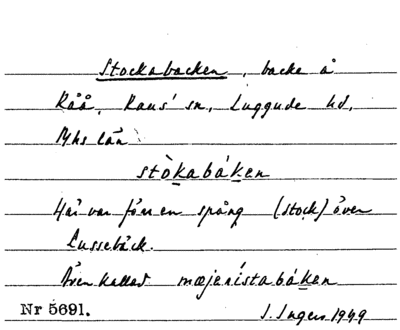 Stockabacken, backe å
Råå, Raus' sn, Luggude hd,
Mhs län
stò̱kabáḵen
Här var förr en spång (stock) över
Lussebäck.
Även kallad mæjenístabáḵen
Nr 5691. J. Ingers 1949